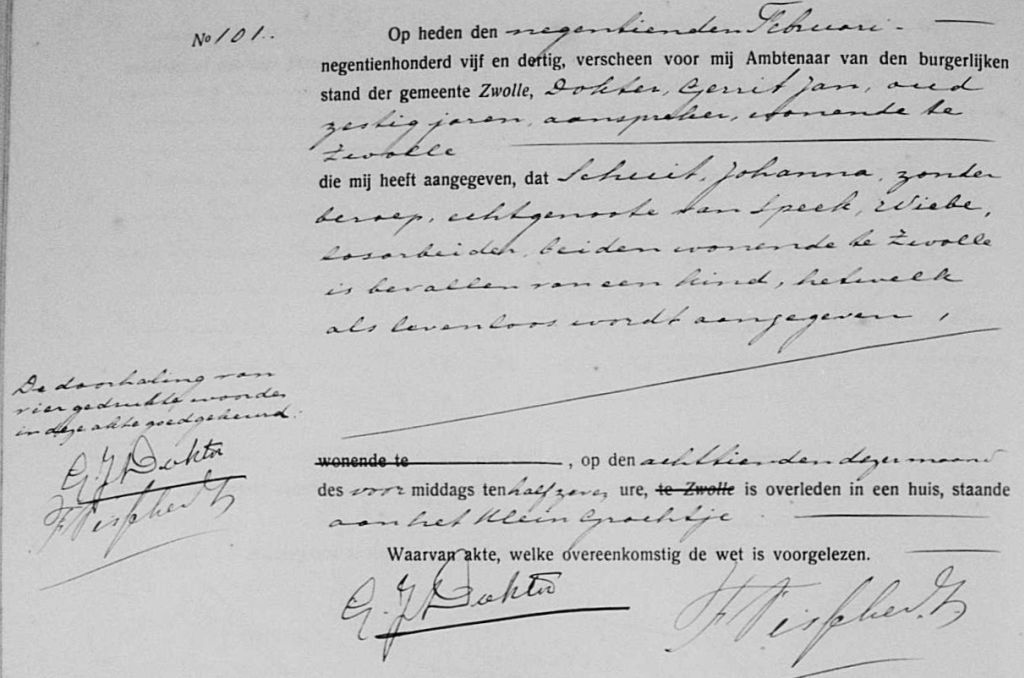 No 101.
Op heden den negentienden Februari
negentienhonderd vijf en dertig, verscheen voor mij Ambtenaar van den burgerlijken
stand der gemeente Zwolle, Dokter, Gerrit Jan, oud
zestig jaren, aanspreker, wonende te
Zwolle
die mij heeft aangegeven, dat Schuit, Johanna, zonder
beroep, echtgenoote van Speek, Wiebe,
losarbeider, beiden wonende te Zwolle
is bevallen van een kind, hetwelk
als levenloos wordt aangegeven,
De doorhaling van
vier gedrukte woorden
in deze akte goedgekeurd.
G. J. Dokter
wonende te , op den achttienden dezer maand
des voor middags ten half zeven ure, te Zwolle is overleden in een huis, staande
aan het Klein Grachtje
Waarvan akte, welke overeenkomstig de wet is voorgelezen.
G. J. Dokter